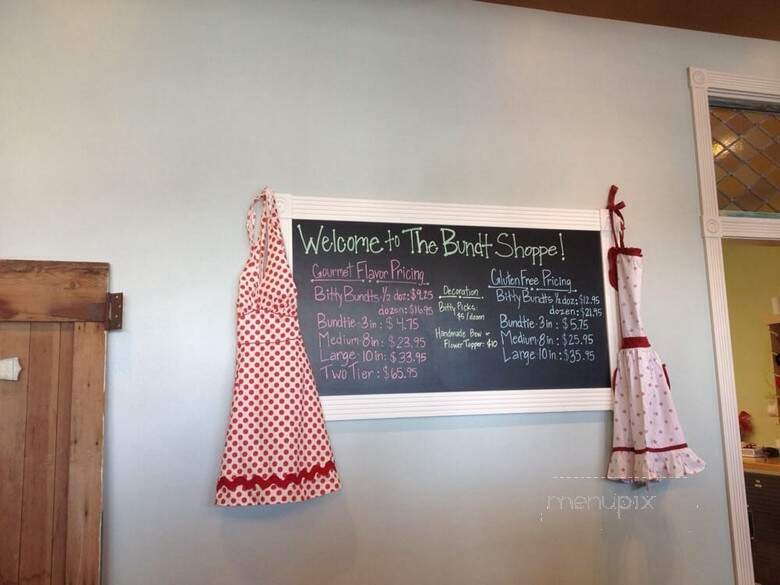 Welcome to The Bundt Shoppe!
Gourmet Flavor Pricing
Bitty Bundts ½ doz: $9.25
dozen: $16.95
Bundtie-3in: $4.75
Medium-8in: $23.95
Large-10in: $33.95
Two Tier: $65.95
Decoration
Bitty Picks
$5/dozen
Handmade Bow or
Flower Topper: $10
Gluten Free Pricing
Bitty Bundts ½ doz: $12.95
dozen: $21.95
Bundtie-3in: $5.75
Medium-8in: $25.95
Large-10in: $35.95
menupix